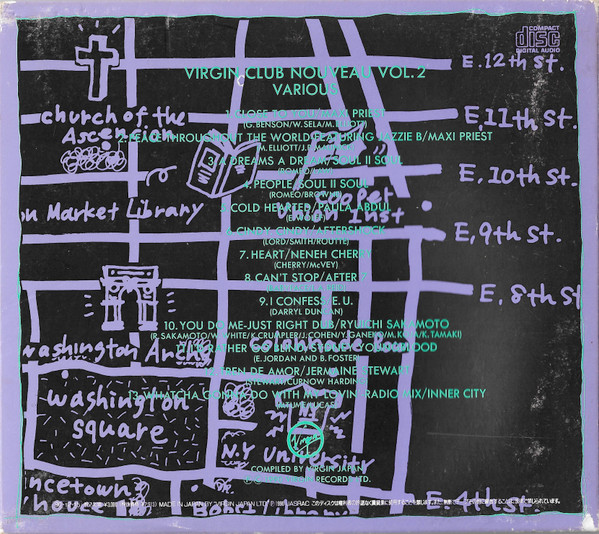 COMPACT
disc
DIGITAL AUDIO
VIRGIN CLUB NOUVEAU VOL.2
VARIOUS
1. CLOSE TO YOU/MAXI PRIEST
(G.BENSON/W.SELA/M.ELLIOTT)
2. PEACE THROUGHOUT THE WORLD FEATURING JAZZIE B/MAXI PRIEST
M.ELLIOTT/J.B.
3. A DREAMS A DREAM/SOUL II SOUL
(ROMEO/LAW)
4. PEOPLE/SOUL II SOUL
(ROMEO/BROWN)
5. COLD HEARTED/PAULA ABDUL
6. CINDY CINDY/AFTERSHOCK
(LORD/SMITH/ROUTTE)
7. HEART/NENEH CHERRY
(CHERRY/McVEY)
8. CAN'T STOP/AFTER 7
9. I CONFESS/E.U.
(DARRYL DUNCAN)
10. YOU DO ME-JUST RIGHT DUB/RYUICHI SAKAMOTO
(R.SAKAMOTO/W.WHITE/K.CRUMPLER/J.COHEN/Y.GANEKO/M.KOTA/K.TAMAKI)
BLOOD
E.JORDAN AND B.FOSTER
DE AMOR/JERMAINE STEWART
13. WHATCHA GONNA DO WITH MY LOVIN' RADIO MIX/INNER CITY
MTUME/LUCAS
Virgin
COMPILED BY VIRGIN JAPAN
church of the
Ascension
n Market Library
Cooper
Union Inst
Washington Arch
Colonnade Row
washington
square
N.Y University
ncetown
house
E.12th st.
E.11th St.
E.10th St.
E.9th St.
E.8th St
E.4th st.
MADE IN JAPAN BY VIRGIN JAPAN LTD.
JASRAC